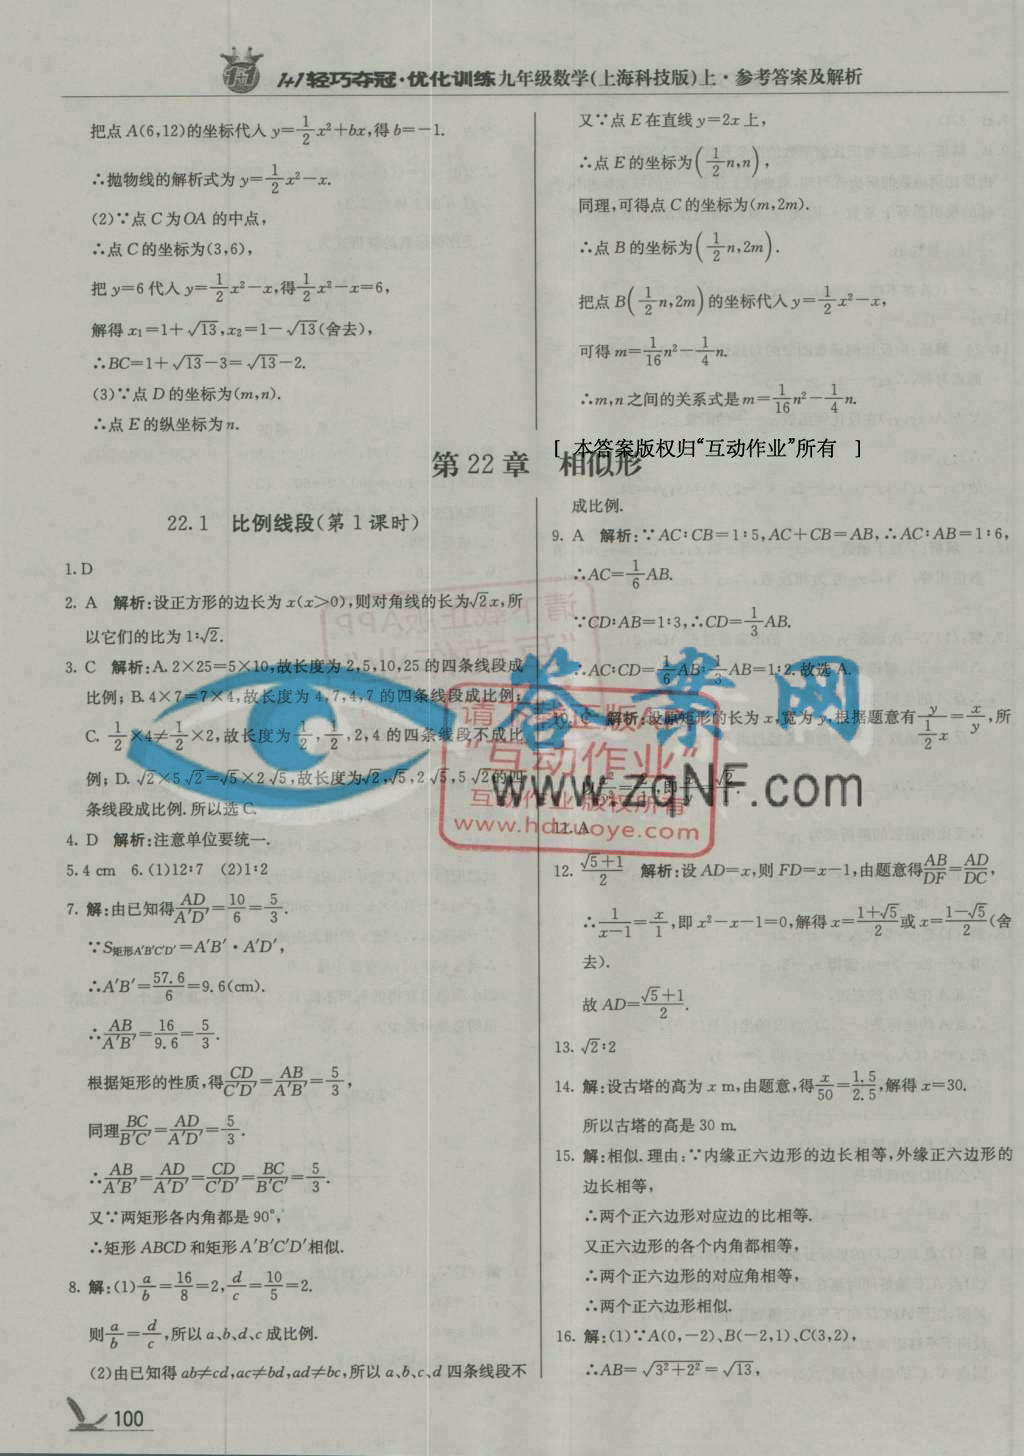 1+1轻巧夺冠·优化训练九年级数学(上海科技版)上·参考答案及解析
把点 A(6,12)的坐标代入 y=1/2x²+bx,得 b=-1.
∴抛物线的解析式为 y=1/2x²-x.
(2)∵点 C 为 OA 的中点,
∴点 C 的坐标为(3,6),
把 y=6 代入 y=1/2x²-x,得1/2x²-x=6,
解得 x₁=1+√13,x₂=1-√13(舍去),
∴BC=1+√13-3=√13-2.
(3)∵点 D 的坐标为(m,n).
∴点 E 的纵坐标为 n.
又∵点 E 在直线 y=2x 上,
∴点 E 的坐标为(1/2n,n),
同理,可得点 C 的坐标为(m,2m).
∴点 B 的坐标为(1/2n,2m).
把点 B(1/2n,2m)的坐标代入 y=1/2x²-x,
可得 m=1/16n²-1/4n.
∴m,n 之间的关系式是 m=1/16n²-1/4n.
[ 本答案版权归“互动作业”所有 ]
第 22 章 相似形
22.1 比例线段(第 1 课时)
1. D
2. A 解析:设正方形的边长为 x(x>0),则对角线的长为√2x,所
以它们的比为 1:√2.
3. C 解析:A. 2×25=5×10,故长度为 2,5,10,25 的四条线段成
比例; B. 4×7=7×4,故长度为 4,7,4,7 的四条线段成比例;
C. 1/2×4≠1/2×2,故长度为1/2,1/2,2,4 的四条线段不成比
例; D. √2×5√2=√5×2√5,故长度为√2,√5,2√5,5√2的四
条线段成比例. 所以选 C.
4. D 解析:注意单位要统一.
5. 4 cm 6. (1)12:7 (2)1:2
7. 解:由已知得AD/A′D′=10/6=5/3.
∵S矩形A′B′C′D′=A′B′·A′D′,
∴A′B′=57.6/6=9.6(cm).
∴AB/A′B′=16/9.6=5/3.
根据矩形的性质,得CD/C′D′=AB/A′B′=5/3,
同理BC/B′C′=AD/A′D′=5/3.
∴AB/A′B′=AD/A′D′=CD/C′D′=BC/B′C′=5/3.
又∵两矩形各内角都是 90°,
∴矩形 ABCD 和矩形 A′B′C′D′相似.
8. 解:(1)a/b=16/8=2,d/c=10/5=2.
则a/b=d/c,所以 a、b、d、c 成比例.
(2)由已知得 ab≠cd,ac≠bd,ad≠bc,所以 a、b、c、d 四条线段不
成比例.
9. A 解析:∵AC:CB=1:5,AC+CB=AB,∴AC:AB=1:6,
∴AC=1/6AB.
∵CD:AB=1:3,∴CD=1/3AB.
∴AC:CD=1/6AB:1/3AB=1:2. 故选 A.
10. C 解析:设原矩形的长为 x,宽为 y,根据题意有y/(1/2x)=x/y,所
11. A
12. (√5+1)/2 解析:设 AD=x,则 FD=x-1,由题意得AB/DF=AD/DC,
∴1/(x-1)=x/1,即 x²-x-1=0,解得 x=(1+√5)/2或 x=(1-√5)/2(舍
去).
故 AD=(√5+1)/2.
13. √2:2
14. 解:设古塔的高为 x m,由题意,得x/50=1.5/2.5,解得 x=30.
所以古塔的高是 30 m.
15. 解:相似. 理由:∵内缘正六边形的边长相等,外缘正六边形的
边长相等,
∴两个正六边形对应边的比相等.
又正六边形的各个内角都相等,
∴两个正六边形的对应角相等,
∴两个正六边形相似.
16. 解:(1)∵A(0,-2)、B(-2,1)、C(3,2),
∴AB=√(3²+2²)=√13,
100
答案网
www.zqNF.com
请下载正版APP
“互动作业”
互动作业 版权所有
www.hdzuoye.com
请下载正版APP